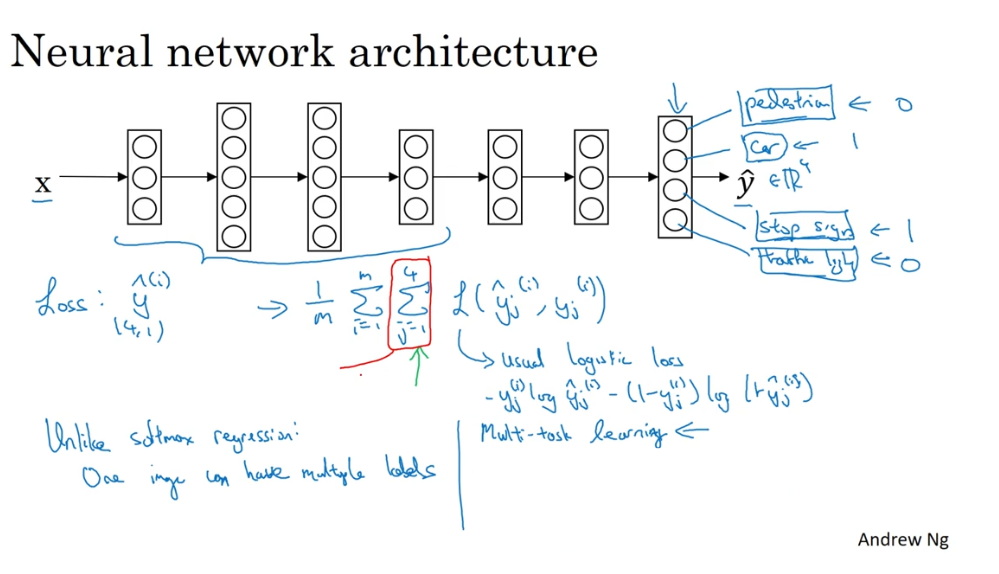 Neural network architecture
pedestrian ← 0
car ← 1
x
ŷ ∈ ℝ⁴
stop sign ← 1
traffic light ← 0
Loss: ŷ^(i) → 1/m Σ_{i=1}^{m} Σ_{j=1}^{4} L(ŷ_j^(i), y_j^(i))
(4,1)
usual logistic loss
- y_j^(i) log ŷ_j^(i) - (1-y_j^(i)) log (1-ŷ_j^(i))
Unlike softmax regression:
One image can have multiple labels
Multi-task learning ←
Andrew Ng